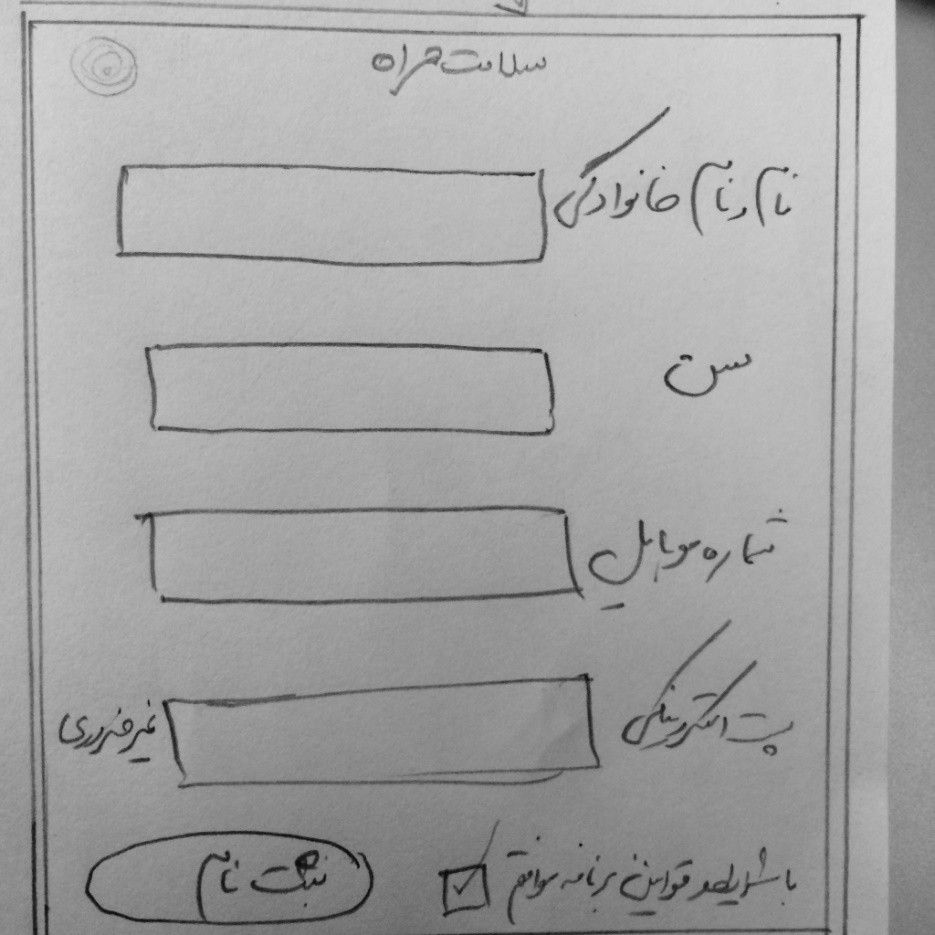 سلامت همراه
نام و نام خانوادگی
سن
شماره موبایل
پست الکترونیکی
غیر ضروری
با شرایط و قوانین برنامه موافقم
ثبت نام